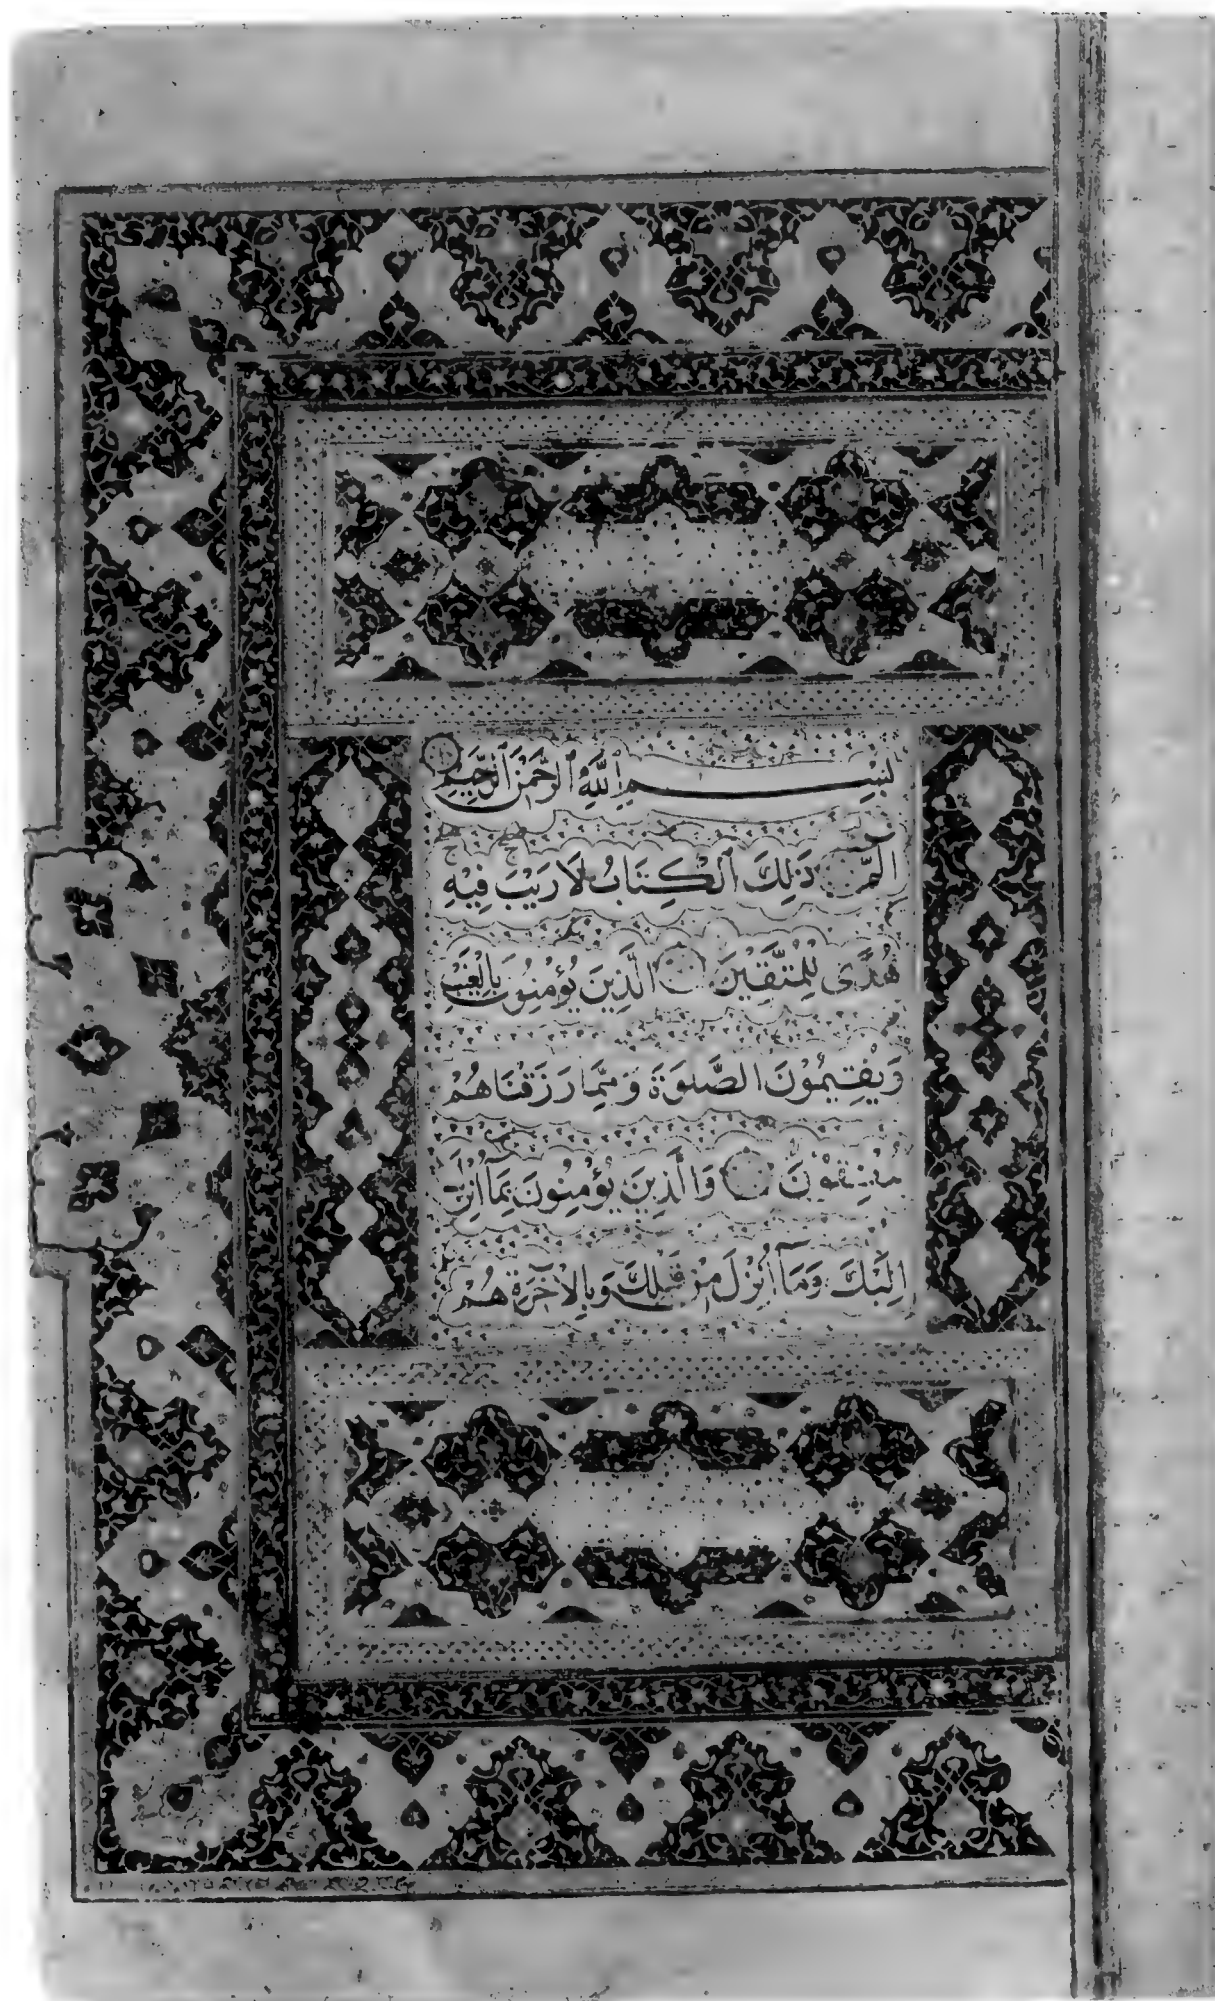 بِسْمِ ٱللَّهِ ٱلرَّحْمَٰنِ ٱلرَّحِيمِ
الٓمٓ ذَٰلِكَ ٱلْكِتَابُ لَا رَيْبَ فِيهِ
هُدًى لِلْمُتَّقِينَ الَّذِينَ يُؤْمِنُونَ بِالْغَيْبِ
وَيُقِيمُونَ الصَّلَوٰةَ وَمِمَّا رَزَقْنَاهُمْ
يُنْفِقُونَ وَالَّذِينَ يُؤْمِنُونَ بِمَآ اُنْزِلَ
اِلَيْكَ وَمَآ اُنْزِلَ مِنْ قَبْلِكَ وَبِالْآخِرَةِ هُمْ